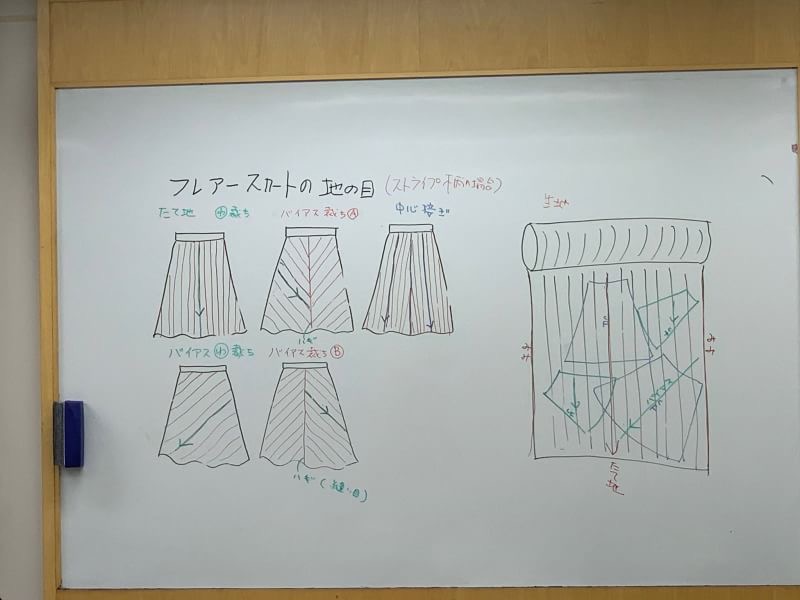 フレアースカートの地の目 (ストライプ柄の場合)
たて地 わ裁ち
バイアス裁ちⒶ
中心接ぎ
ハギ
バイアスわ裁ち
バイアス裁ちⒷ
ハギ (縫い目)
生地
みみ
みみ
バイアス
たて地